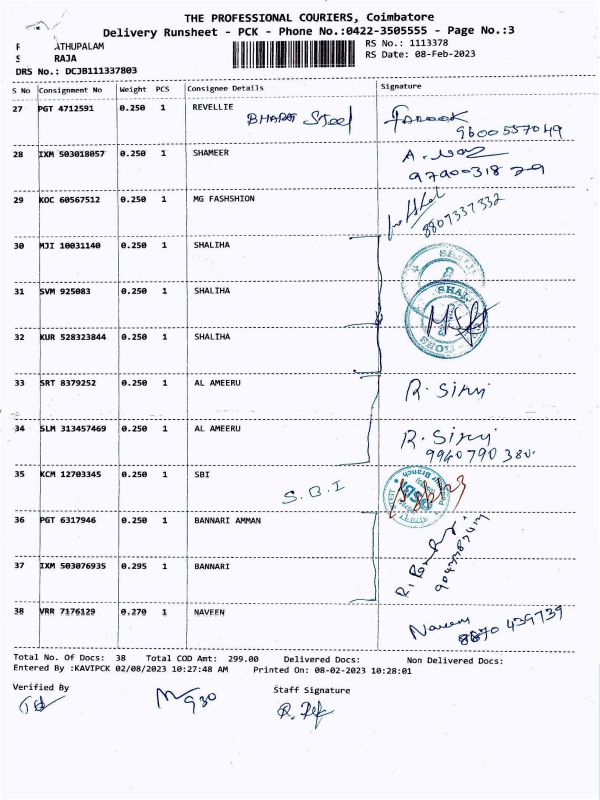 THE PROFESSIONAL COURIERS, Coimbatore
Delivery Runsheet - PCK - Phone No.:0422-3505555 - Page No.:3
ATHUPALAM
RS No.: 1113378
RAJA
RS Date: 08-Feb-2023
DRS No.: DCJB111337803
S No Consignment No Weight PCS Consignee Details Signature
27 PGT 4712591 0.250 1 REVELLIE BHARAT Steel FAROOK
9600557049
28 IXM 503018057 0.250 1 SHAMEER
29 KOC 60567512 0.250 1 MG FASHSHION
8807337332
30 MJI 10031140 0.250 1 SHALIHA
31 SVM 925083 0.250 1 SHALIHA
32 KUR 528323844 0.250 1 SHALIHA
33 SRT 8379252 0.250 1 AL AMEERU R. Siruj
34 SLM 313457469 0.250 1 AL AMEERU R. Siruj
9940790380.
35 KCM 12703345 0.250 1 SBI S.B.I SBI
36 PGT 6317946 0.250 1 BANNARI AMMAN
37 IXM 503076935 0.295 1 BANNARI
38 VRR 7176129 0.270 1 NAVEEN Naveen
8870439739
Total No. Of Docs: 38 Total COD Amt: 299.00 Delivered Docs: Non Delivered Docs:
Entered By :KAVIPCK 02/08/2023 10:27:48 AM Printed On: 08-02-2023 10:28:01
Verified By Staff Signature